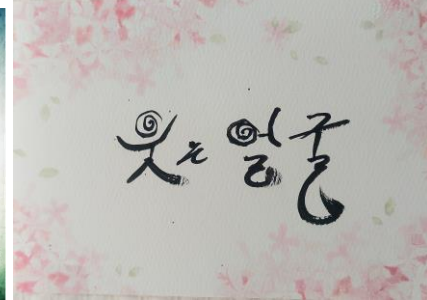 웃는 얼굴